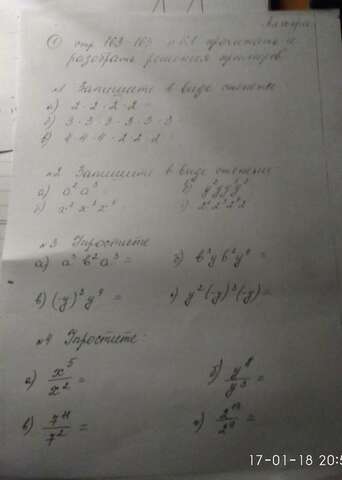 Алгебра
① стр 163-165 п 6.1 прочитать и
разобрать решения примеров
№1 Запишите в виде степени
а) 2·2·2·2 =
б) 3·3·3·3·3·3
в) 4·4·4·2·2·2 =
№2 Запишите в виде степени
а) a² a³ =
№3 Упростите
а) a³ b² a³ =
в) (-y)³ y⁴ =
г) y² (-y)³ (-y) =
№4 Упростите:
а) x⁵/x² =
б) y⁸/y³ =
в) 7¹¹/7² =
г)
17-01-18 20:5